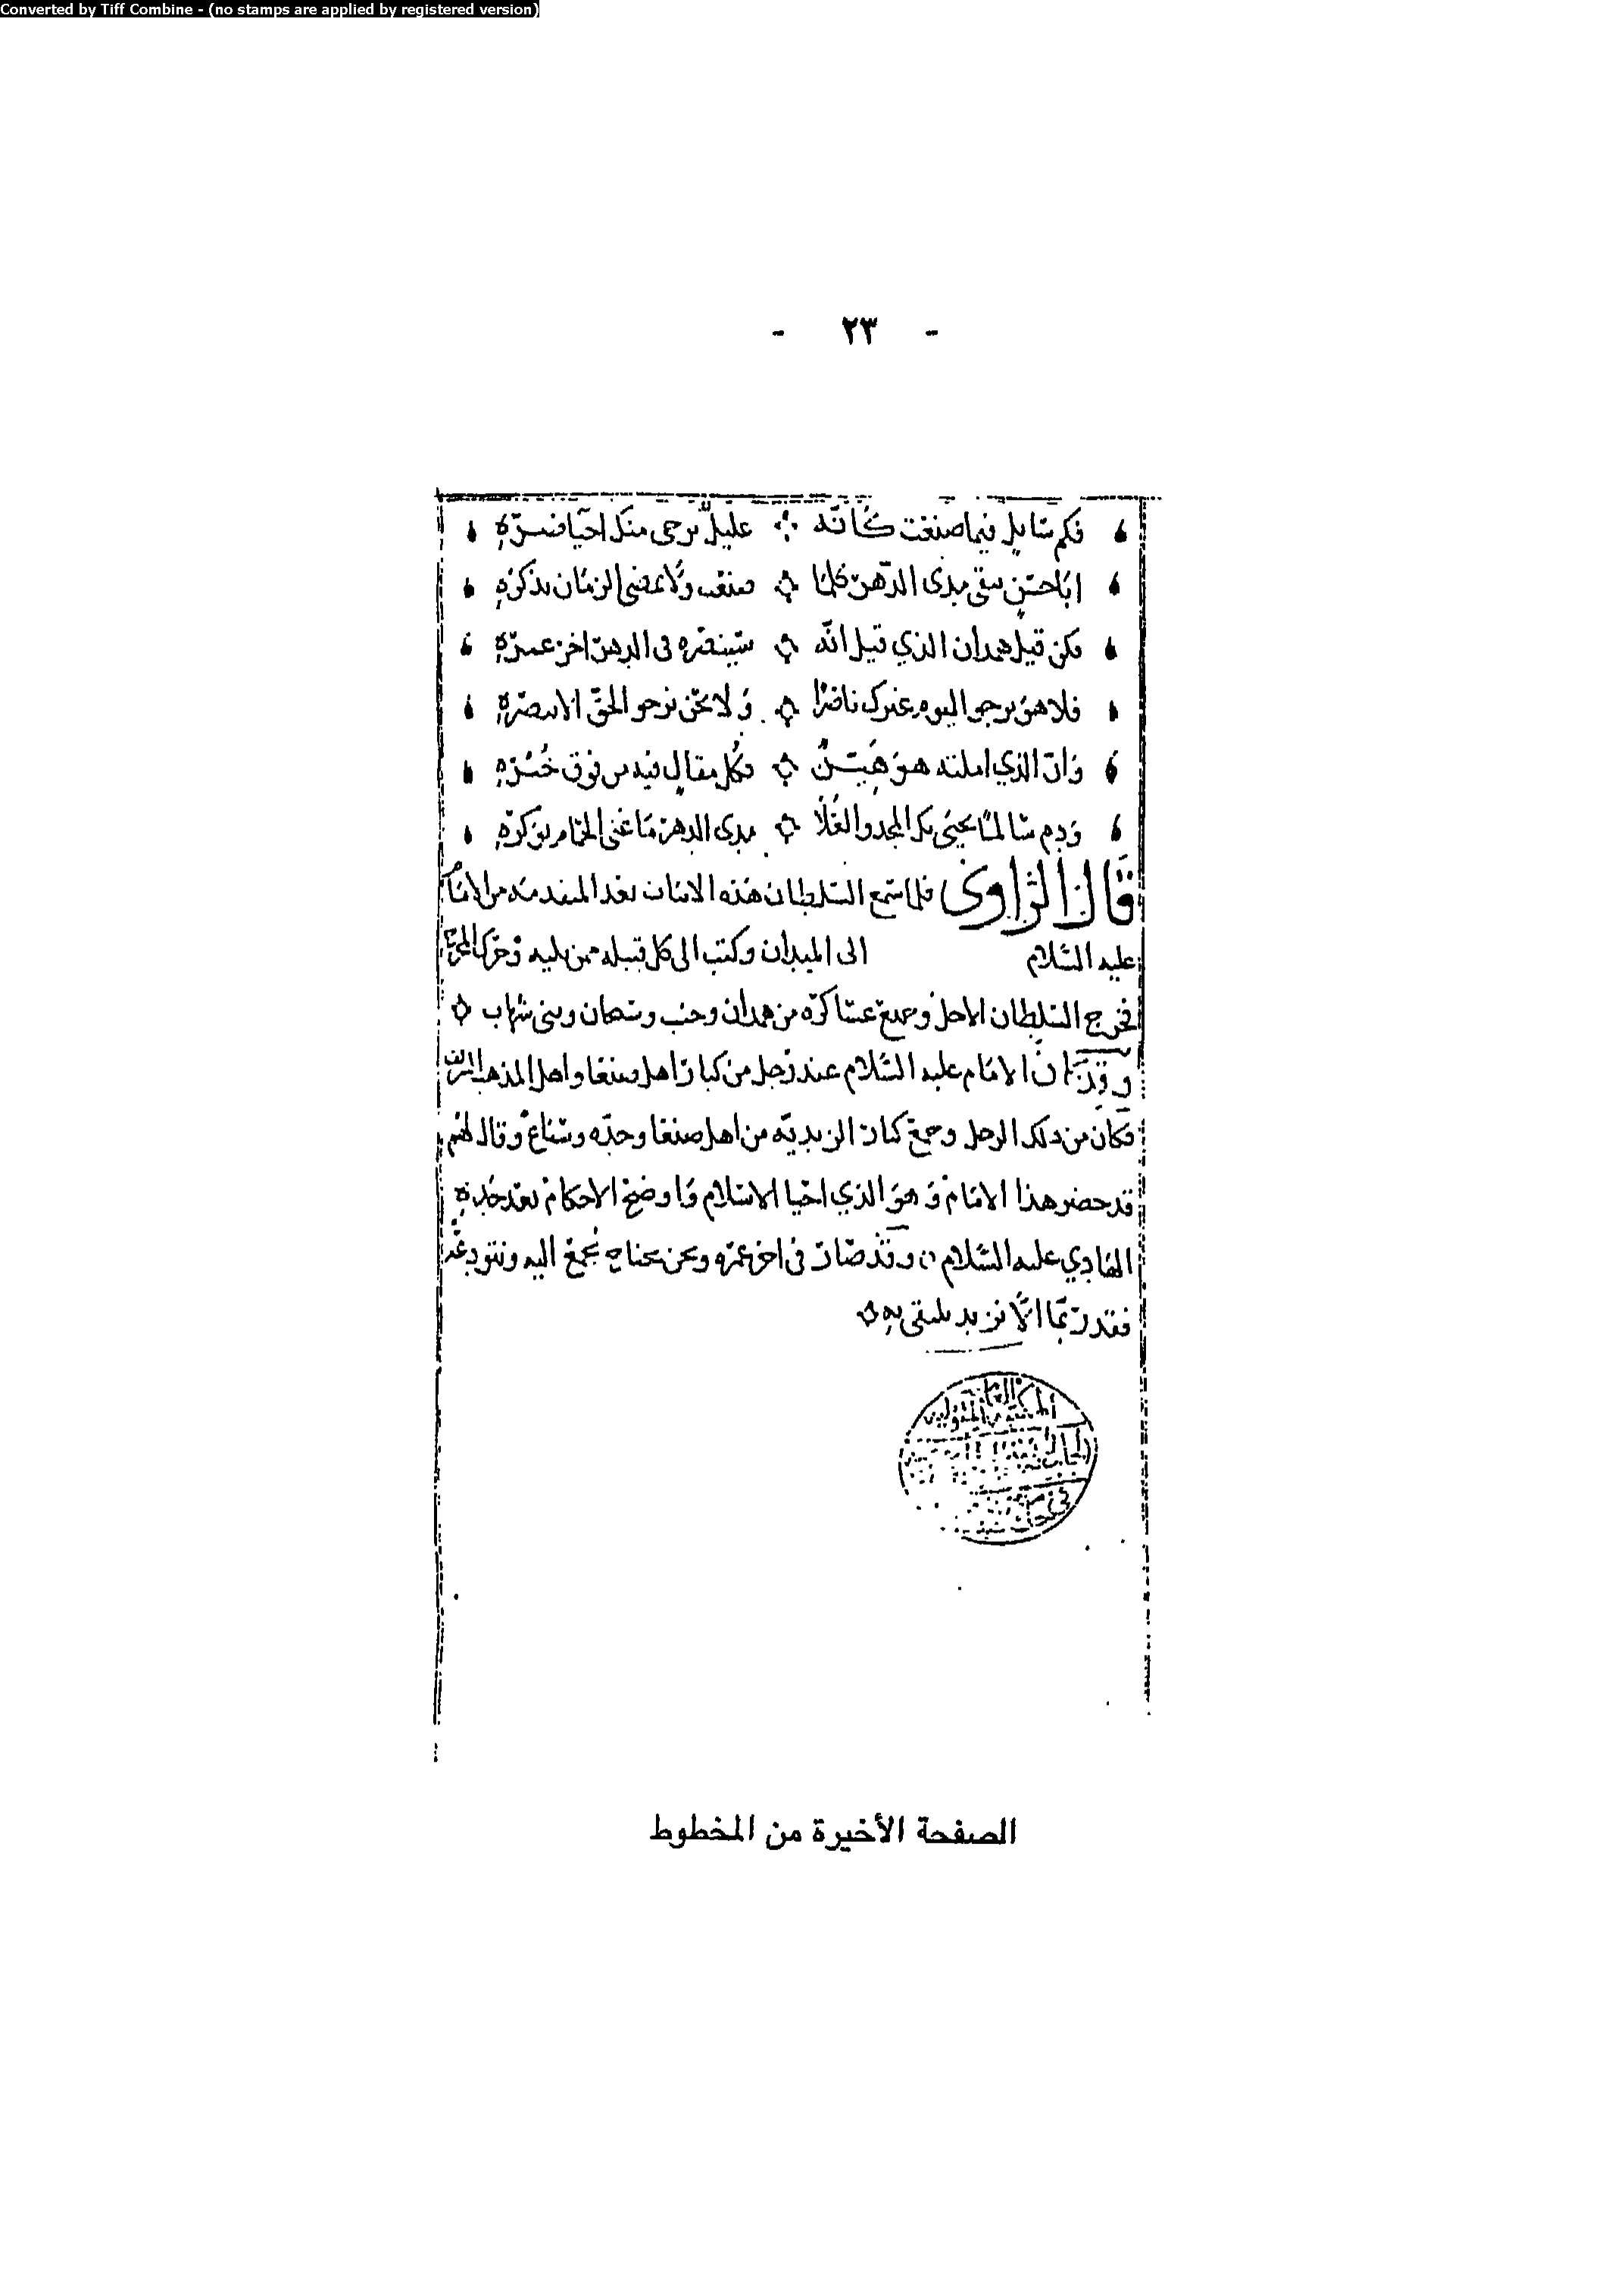 Converted by Tiff Combine - (no stamps are applied by registered version)
- ٢٣ -
فكم سايل فيما صنعت كانه ۞ عليل يرجى منك احيا ضره
ابا حسن سقى مدى الدهر كلما ۞ صنعت ولا يمضى الزمان بذكره
فكن قيل همدان الذي قيل انه ۞ سينصره فى الدهر اخر عمره
فلا هو يرجو اليوم غيرك ناصرا ۞ ولا نحن نرجو الحق الا بنصره
وان الذي املته هو هين ۞ فكل مقال فيه من فوق
ودم سالما يحيى بك المجد والعلا ۞ مدى الدهر ما غنى الحمام بوكره
قال الراوي فلما سمع السلطان هذه الابيات بعد من الامام
عليه السلام الى الميدان وكتب الى كل قبيله ممن يليه وحرك
فخرج السلطان الاجل وجميع عساكره من همدان وجنب وسنحان وبنى شهاب ۞
وقد كان الامام عليه السلام عند رجل من كبار اهل صنعا واهل المذهب
فكان من ذلك الرجل وجمع كبار الزيديه من اهل صنعا وحده وسناع وقال لهم
قد حضر هذا الامام وهو الذي احيا الاسلام واوضح الاحكام بعد جده
الهادي عليه السلام وقد صار فى اخر عمره ونحن نحتاج نجمع اليه ونتودعه
فقد ربما الا نزيد نلتقى به ۞
الصفحة الأخيرة من المخطوط